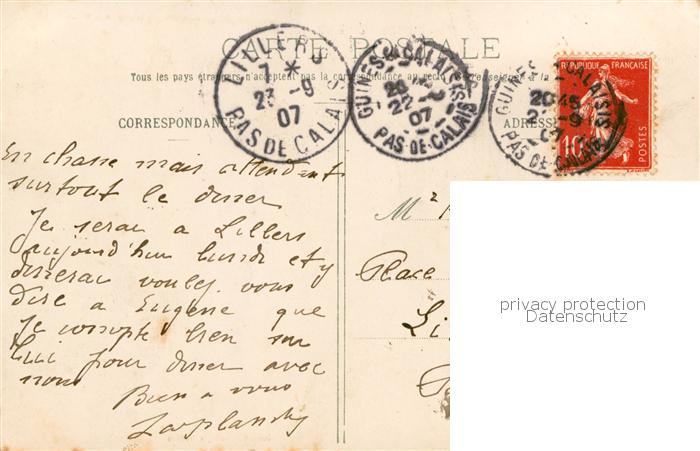 CARTE POSTALE
Tous les pays étrangers n'acceptent pas la correspondance au recto (se renseigner à la
CORRESPONDANCE
ADRESSE
LILLERS
7 *
23 -9
07
PAS DE CALAIS
GUINES-CALAISIS
20
22 -9
07
PAS-DE-CALAIS
GUINES-CALAISIS
20 45
22 -9
07
PAS-DE-CALAIS
REPUBLIQUE FRANÇAISE
10
POSTES
En chasse mais attendent
surtout le diner
Je serai à Lillers
aujourd'hui lundi et y
dinerai voulez vous
dire a Eugene que
Je compte bien sur
lui pour diner avec
nous
Bien a vous
Mr
Place
Li
privacy protection
Datenschutz